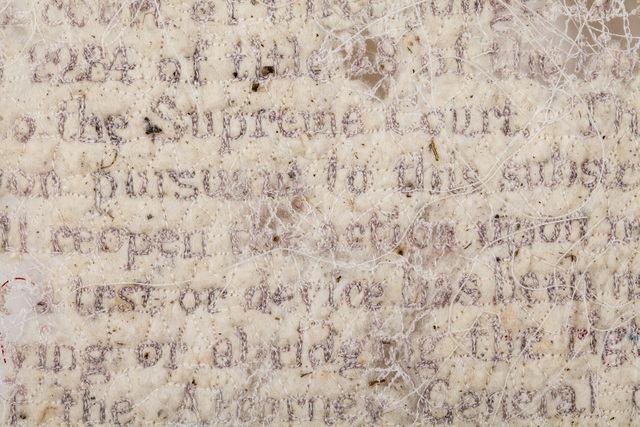 2284 of title 28 of the
to the Supreme Court. Th
on pursuant to this subse
ll reopen the action upon m
a test or device has been
ing or abridging the
f the Attorney General